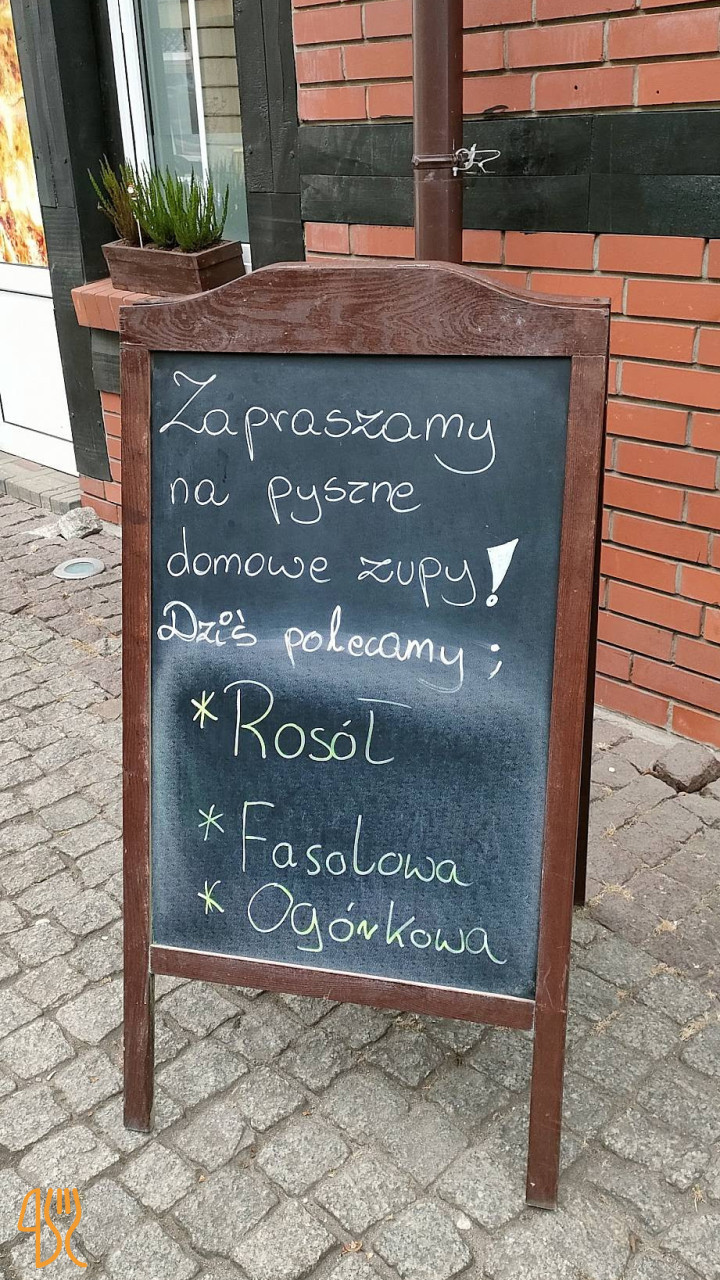 Zapraszamy
na pyszne
domowe zupy!
Dziś polecamy;
* Rosół
* Fasolowa
* Ogórkowa